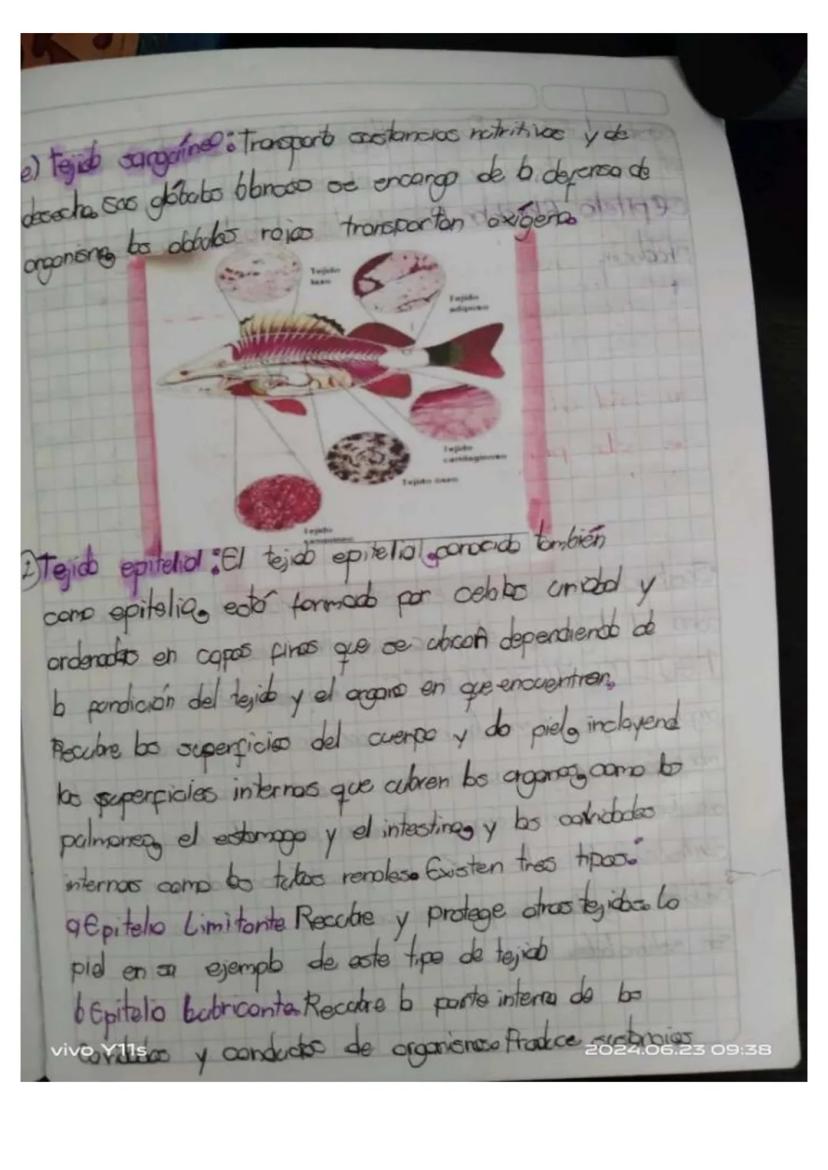 e) Tejido sanguíneo: Transporta sustancias nutritivas y de
desecho, sus glóbulo blanco se encargo de la defensa de
organismo, los glóbulos rojos transportan oxígeno.
Tejido
laxo
Tejido
adiposo
Tejido
cartilaginoso
Tejido óseo
Tejido
sanguíneo
2) Tejido epitelial: El tejido epitelial, conocido también
como epitelio, está formado por células unidad y
ordenadas en capas finas que se ubican dependiendo de
la condición del tejido y el organo en que encuentren,
Recubre las superficies del cuerpo y do piel, incluyend
las superficies internas que cubren los organos, como lo
pulmones, el estomago y el intestino, y las cavidades
internas como los tubos renales. Existen tres tipos:
a Epitelio Limitante Recubre y protege otros tejidos. La
piel en un ejemplo de este tipo de tejido
b Epitelio Lubricante. Recubre la parte interna de los
y conductos de organismos. Produce
vivo Y11s
2024.06.23 09:38